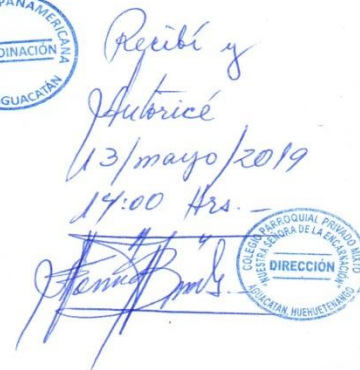 PANAMERICANA
DINACIÓN
GUACATÁN
Recibí y
Autoricé
13/mayo/2019
14:00 Hrs.-
COLEGIO PARROQUIAL PRIVADO MIXTO
"NUESTRA SEÑORA DE LA ENCARNACIÓN"
DIRECCIÓN
AGUACATÁN, HUEHUETENANGO